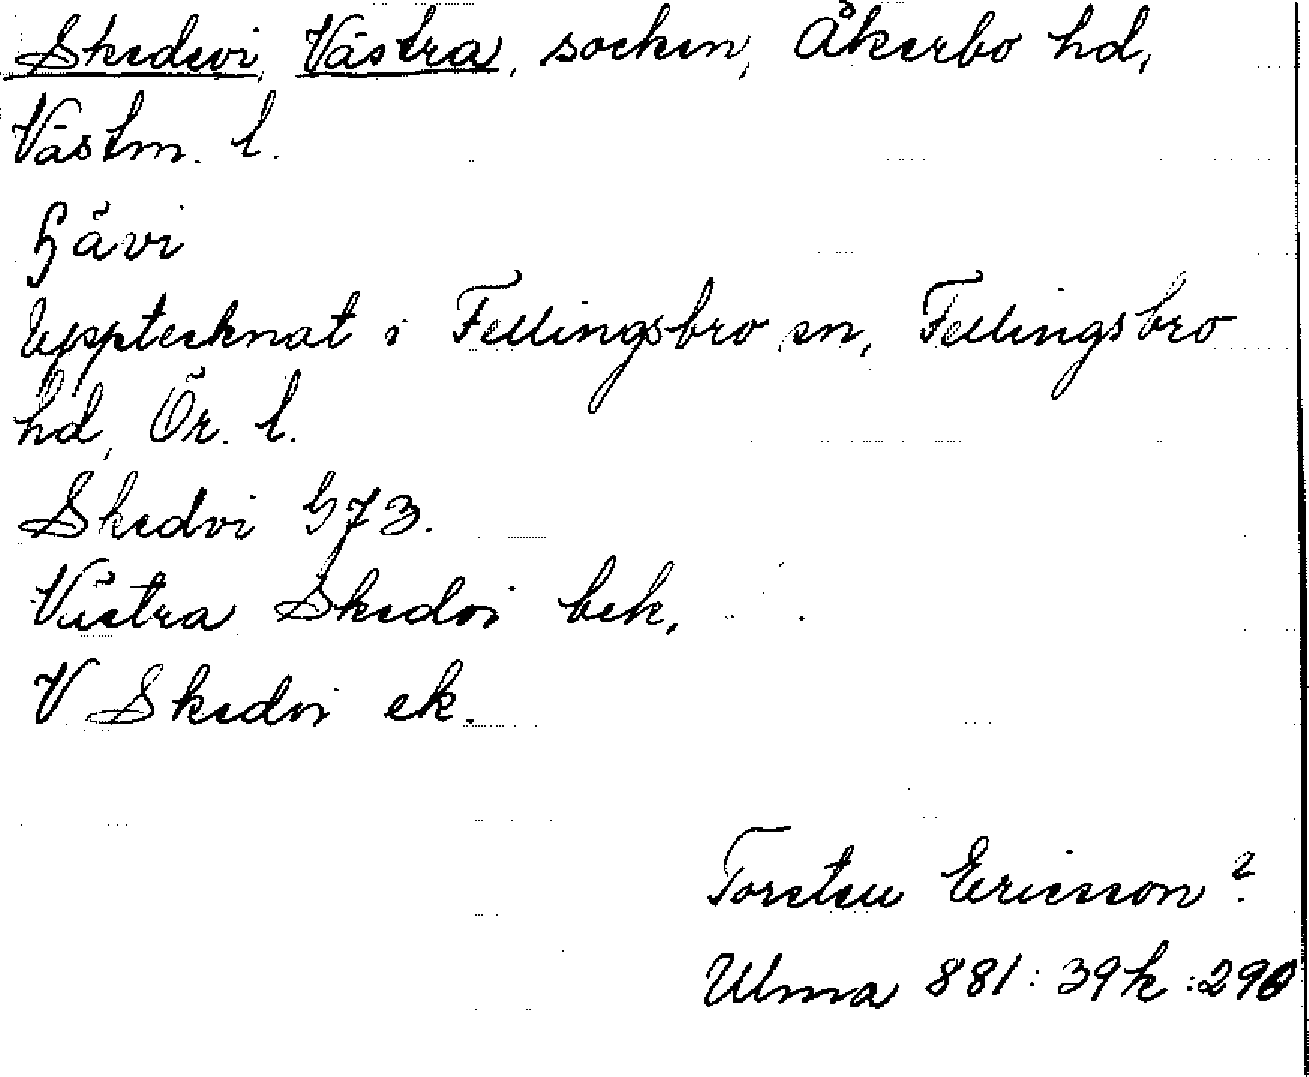 Skedevi, Västra, socken, Åkerbo hd,
Västm. l.
ɧävi
Upptecknat i Fellingsbro sn, Fellingsbro
hd, Ör. l.
Skedvi G73.
Västra Skedvi bek,
V Skedvi ek.
Torsten Ericsson?
Ulma 881:39k:290